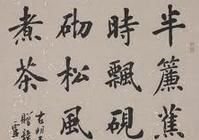 半簾蕉
時飄硯
砌松風
煮茶